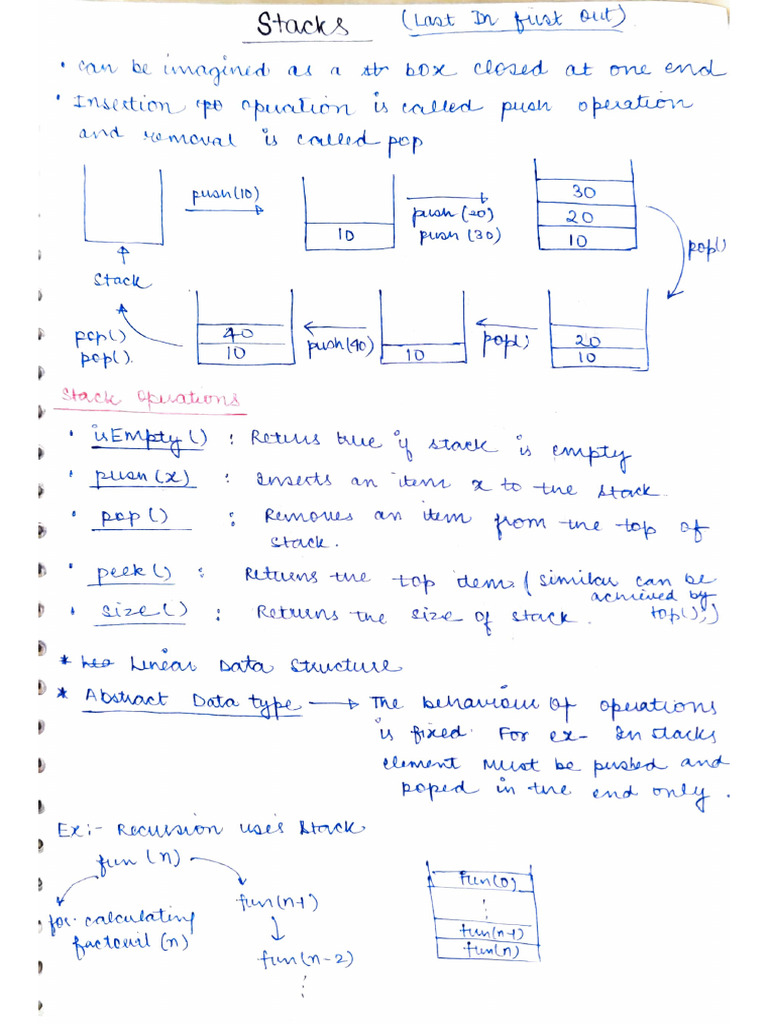 Stacks (Last In first Out)
• can be imagined as a box closed at one end
• Insertion operation is called push operation
and removal is called pop
push(10)
10
push(20)
push(30)
30
20
10
pop()
Stack
pop()
pop().
40
10
push(40)
10
pop()
20
10
Stack Operations
• isEmpty() : Returns true if stack is empty
• push(x) : Inserts an item x to the stack.
• pop() : Removes an item from the top of
stack.
• peek() : Returns the top item. (similar can be
achieved by
• size() : Returns the size of stack. top();)
* Linear Data Structure
* Abstract Data type → The behaviour of operations
is fixed. For ex- In stacks
element must be pushed and
poped in the end only.
Ex:- Recursion uses stack
fun(n)
for calculating
factorial(n)
fun(n-1)
↓
fun(n-2)
⋮
fun(0)
⋮
fun(n-1)
fun(n)